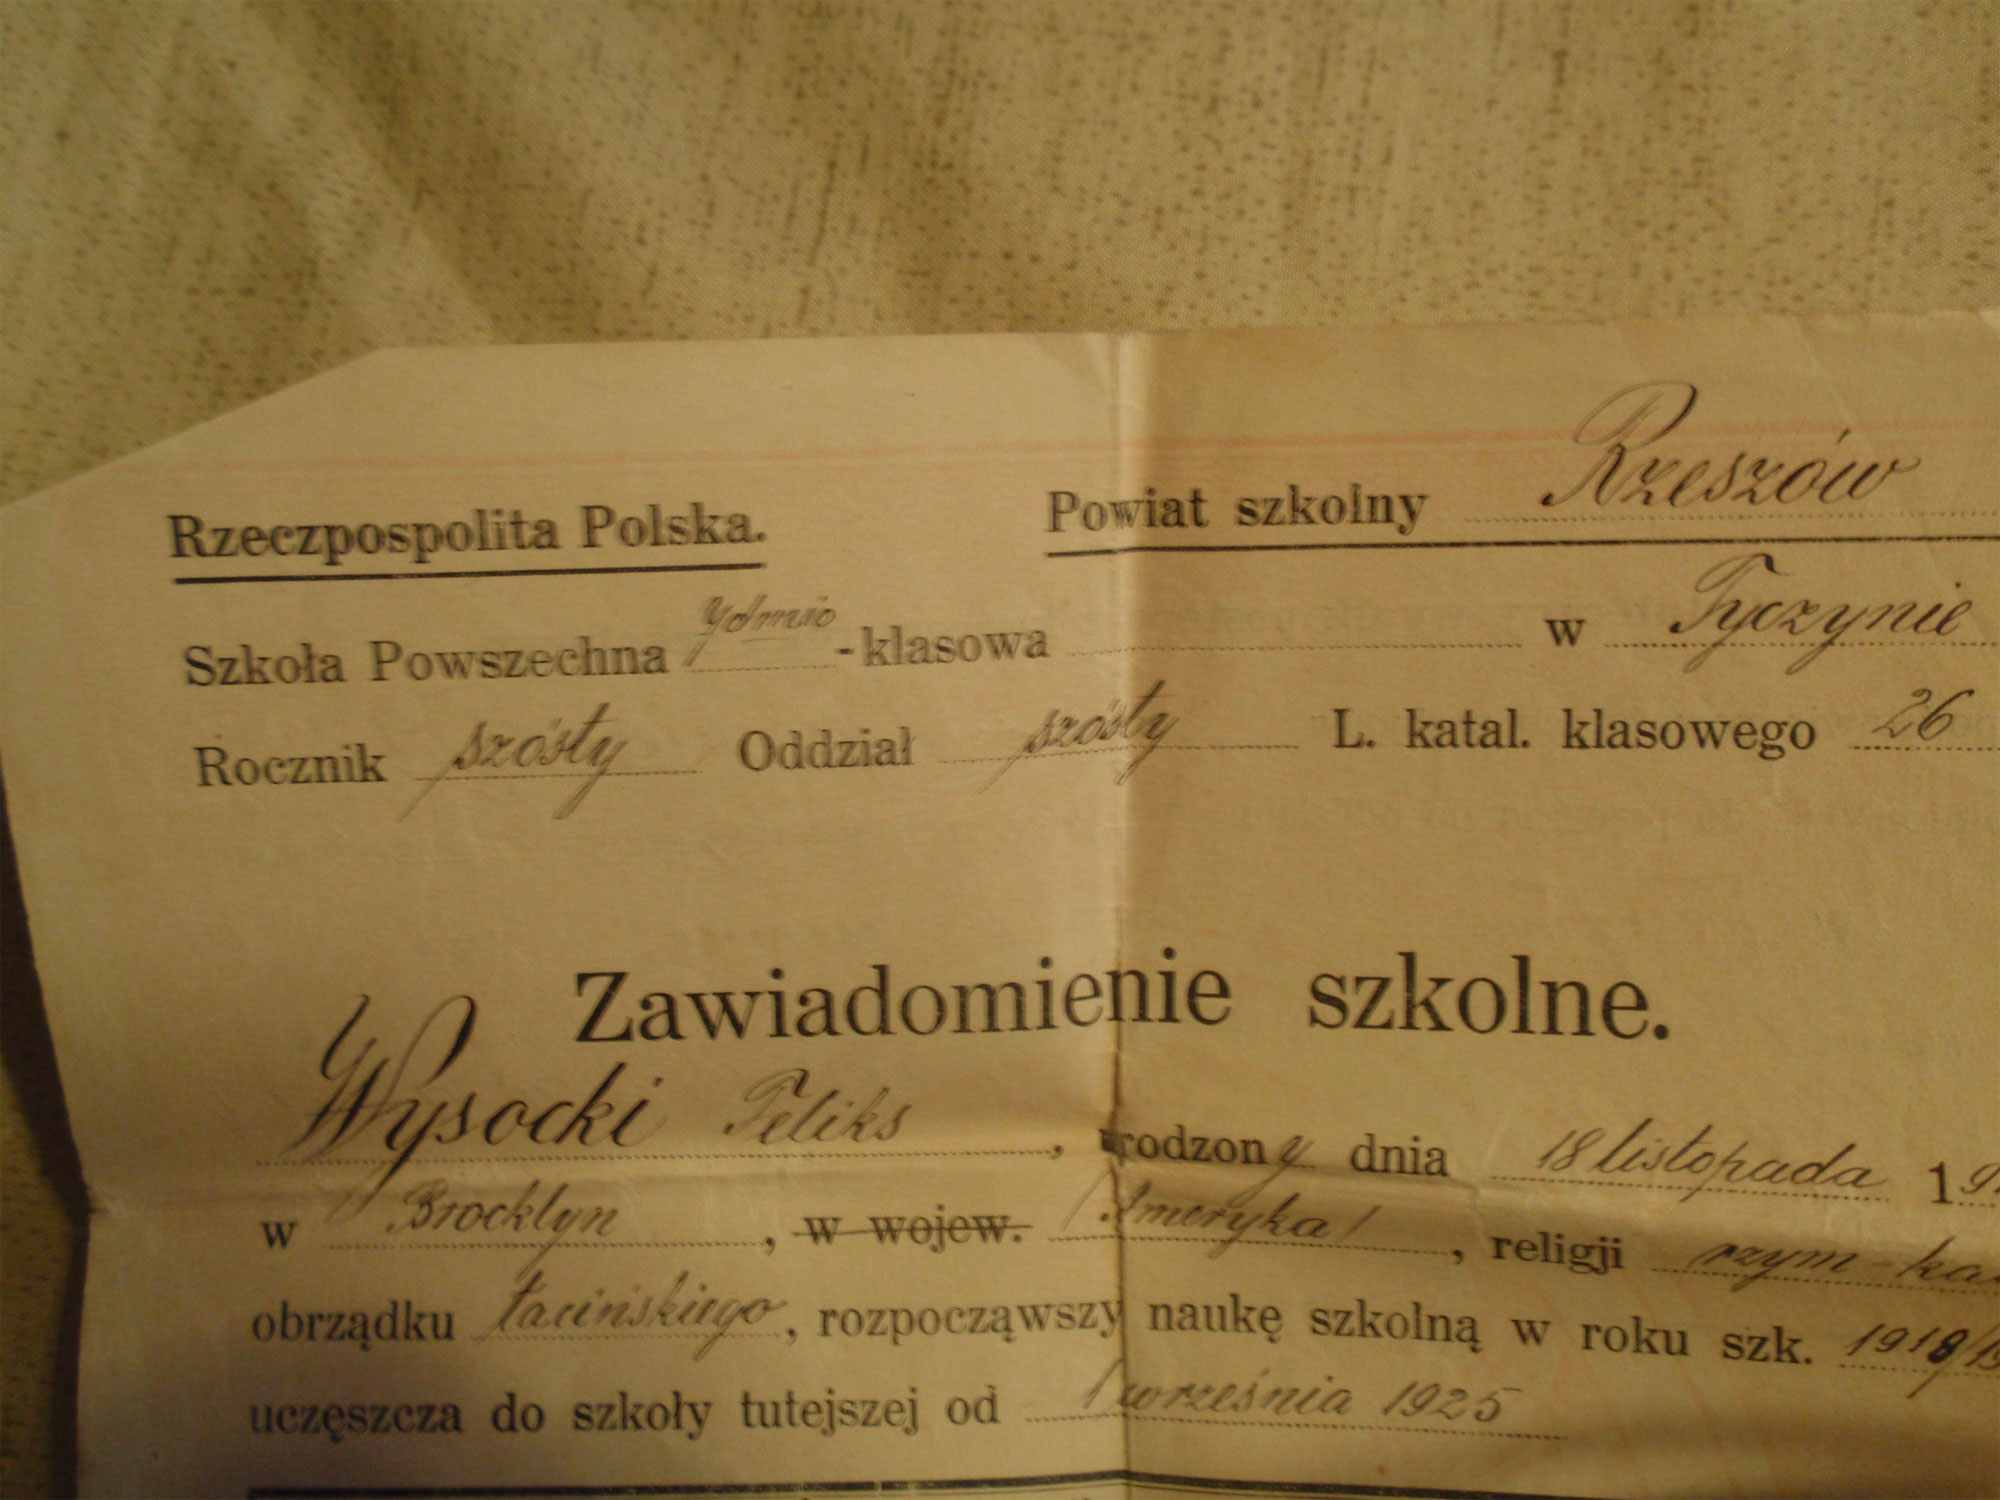 Rzeczpospolita Polska. Powiat szkolny Rzeszów
Szkoła Powszechna -klasowa w Tyczynie
Rocznik szósty Oddział szósty L. katal. klasowego 26
Zawiadomienie szkolne.
Wysocki Feliks, urodzony dnia 18 listopada 19
w Brocklyn, w wojew. /Ameryka/, religji rzym-ka
obrządku łacińskiego, rozpocząwszy naukę szkolną w roku szk. 1918/19
uczęszcza do szkoły tutejszej od 1 września 1925